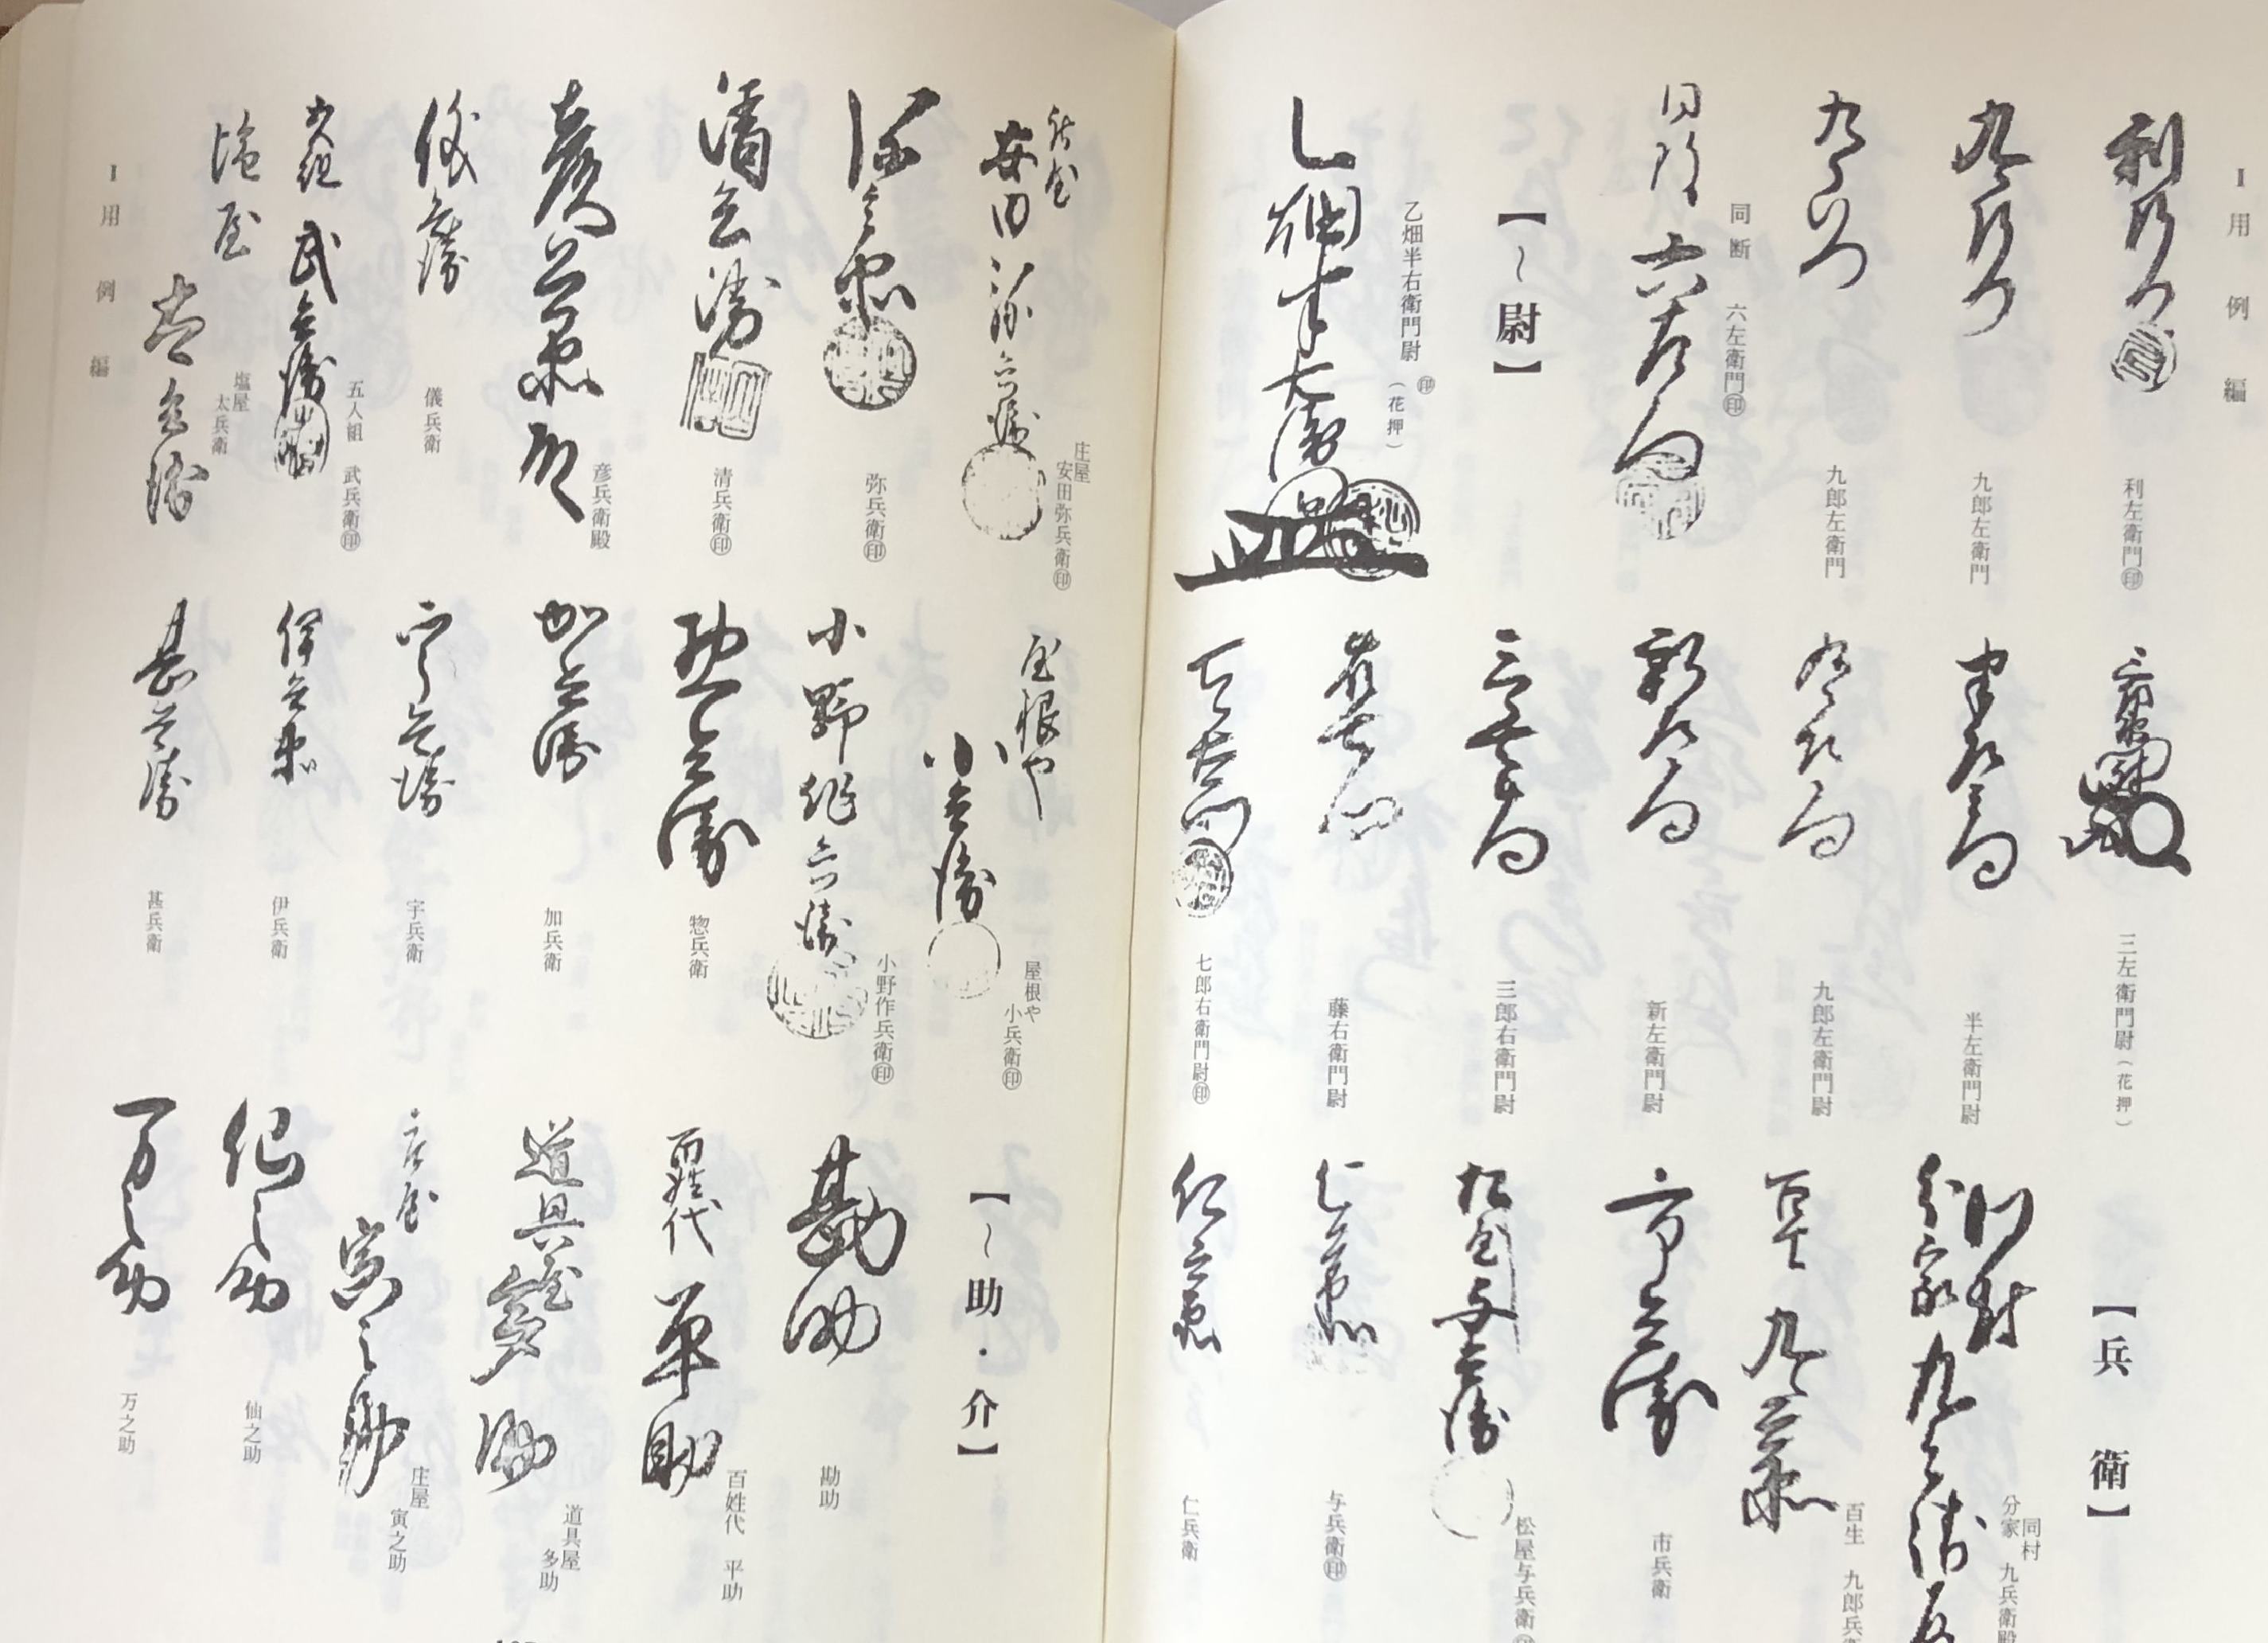 I 用例編
利左衛門㊞
九郎左衛門
九郎左衛門
同断 六左衛門㊞
【～尉】
乙畑半右衛門尉㊞(花押)
三左衛門尉(花押)
半左衛門尉
九郎左衛門尉
新左衛門尉
三郎右衛門尉
藤右衛門尉
七郎右衛門尉㊞
【兵衛】
同村
分家 九兵衛殿
百生 九郎兵衛
市兵衛
松屋与兵衛㊞
与兵衛㊞
仁兵衛
庄屋
安田弥兵衛㊞
弥兵衛㊞
清兵衛㊞
彦兵衛殿
儀兵衛
五人組 武兵衛㊞
塩屋
太兵衛
屋根や
小兵衛㊞
小野作兵衛㊞
惣兵衛
加兵衛
宇兵衛
伊兵衛
甚兵衛
【～助・介】
勘助
百姓代 平助
道具屋
多助
庄屋
寅之助
仙之助
万之助
I 用例編